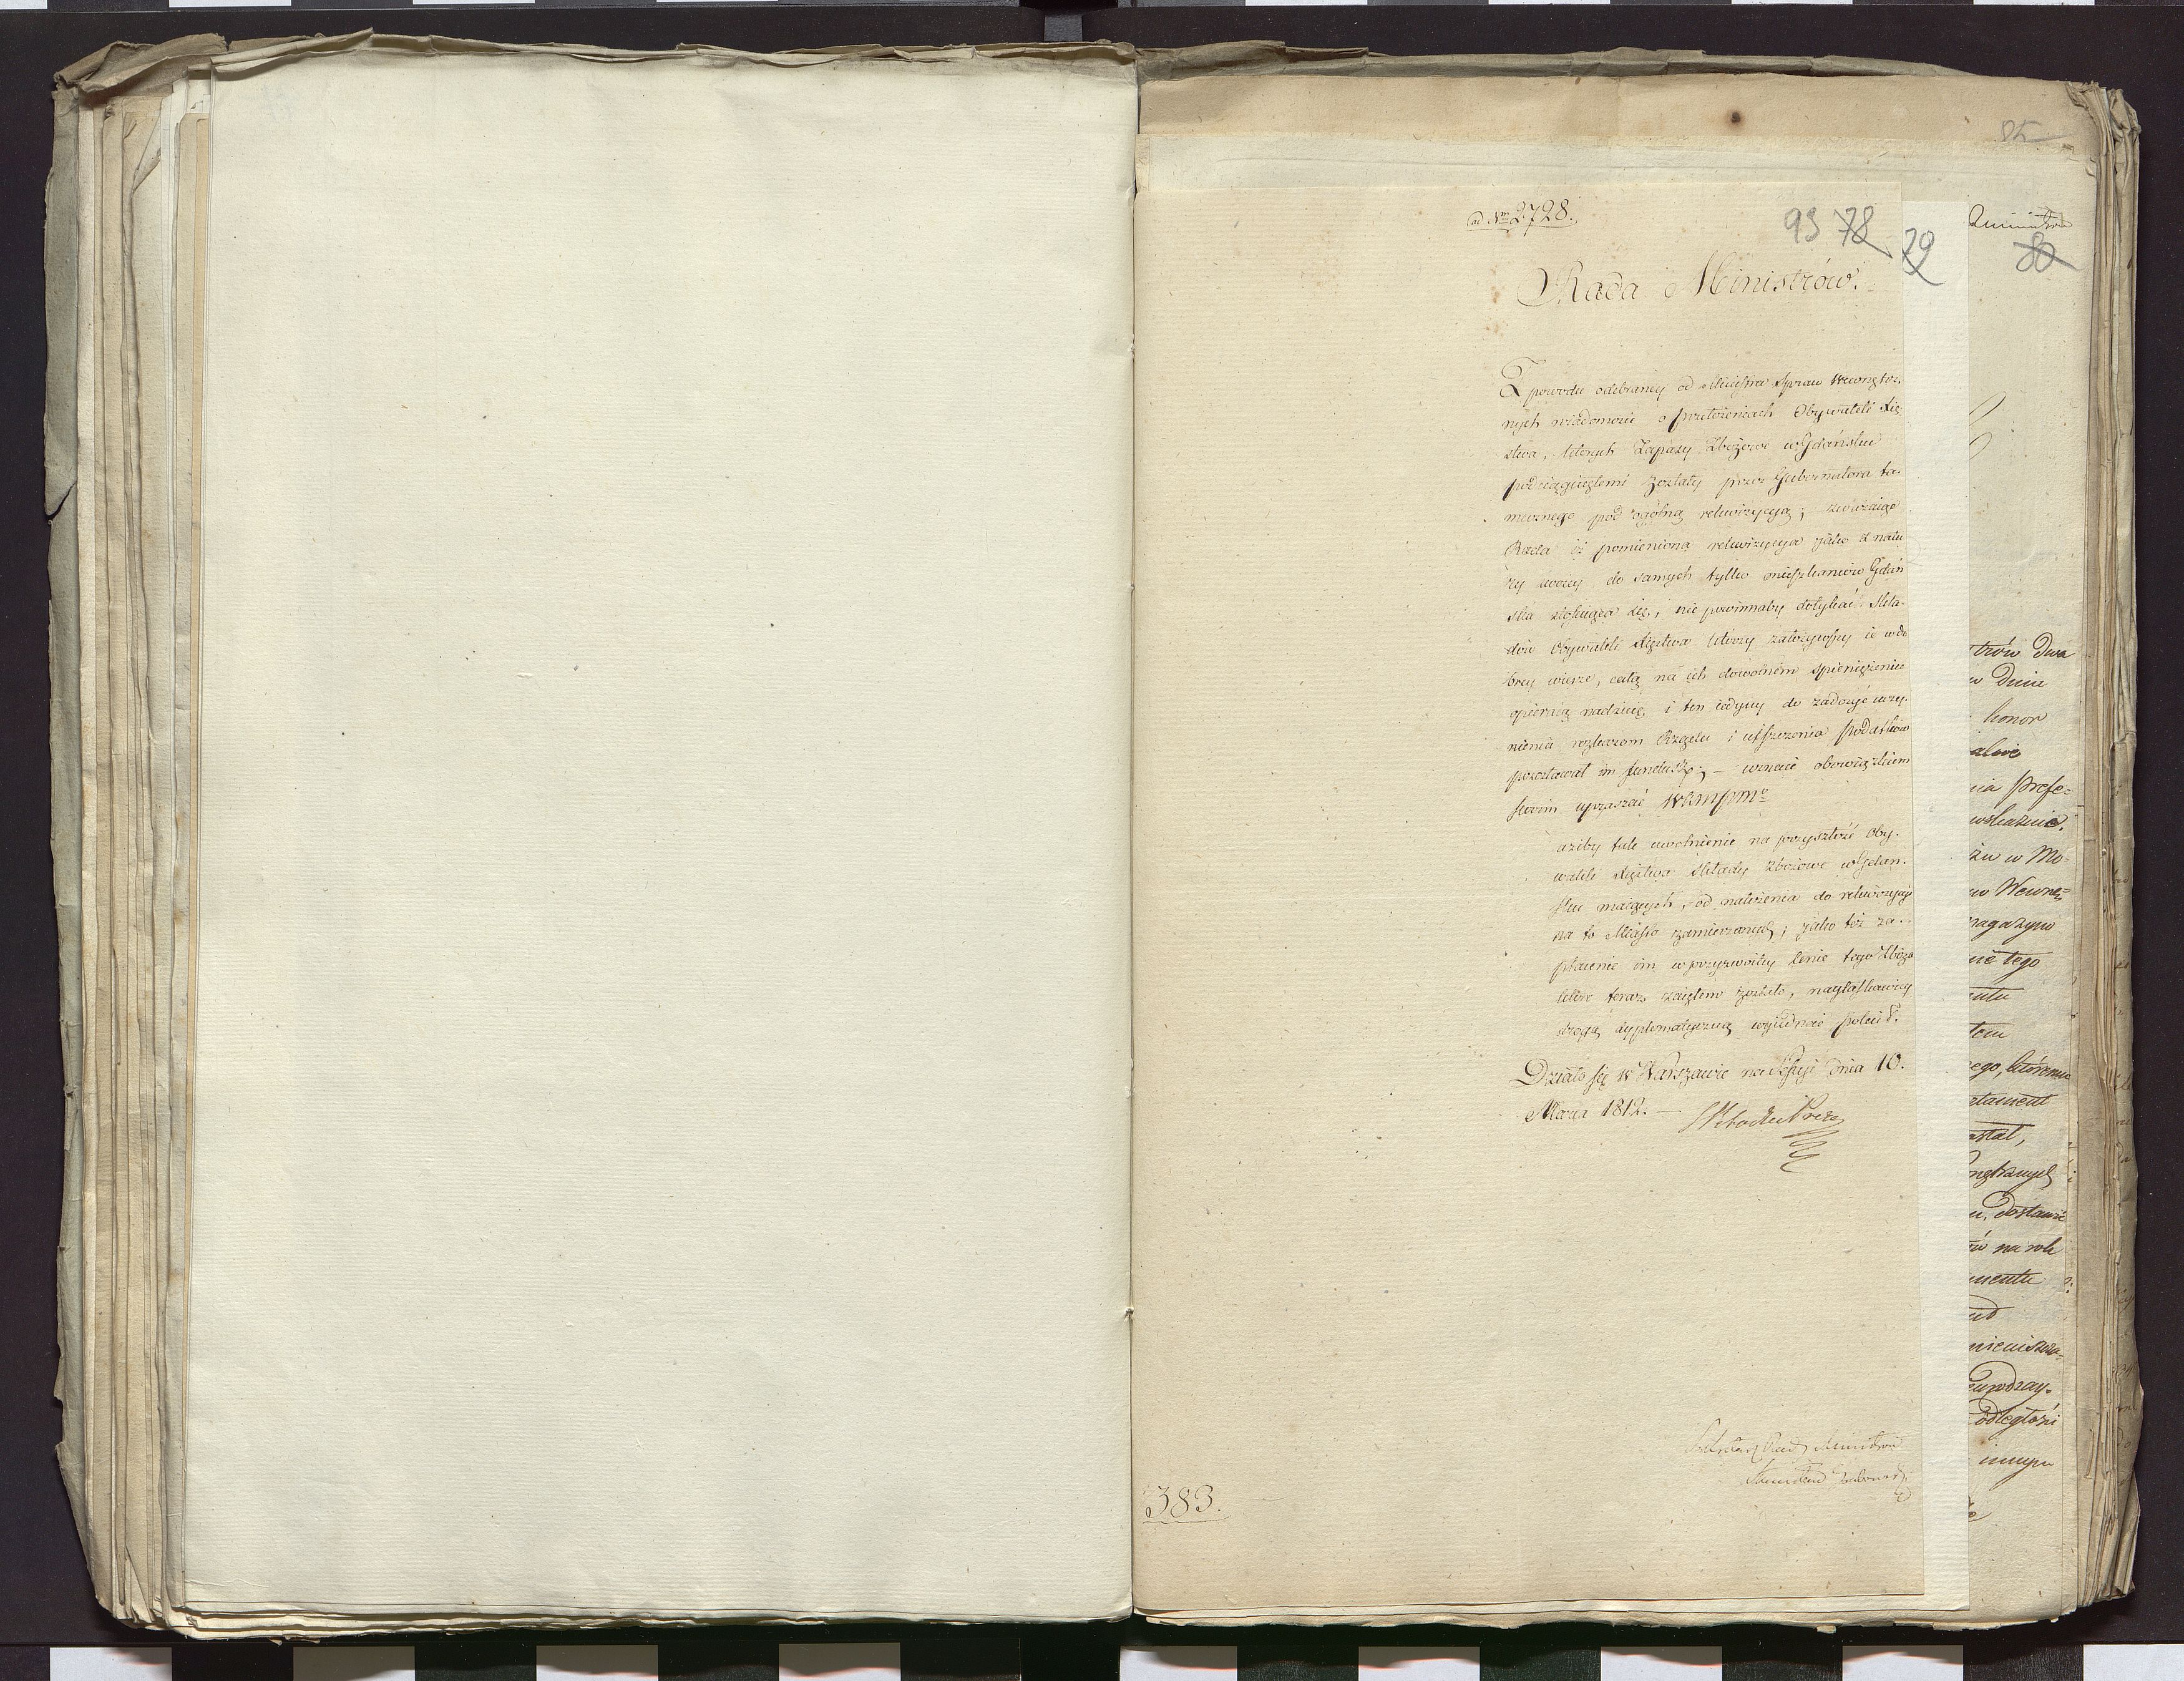 85
ad Nrm 2728.
93 78
79
80
Rada Ministrów.
Z powodu odebraney od Ministra Spraw Wewnętrz-
nych wiadomości o przełożeniach Obywateli Xię-
stwa, których Zapasy Zbożowe w Gdańsku
pociągniętemi zostały przez Gubernatora ta-
mecznego pod ogólną rekwizycyą; zważaiąc
Rada iż pomieniona rekwizycya jako z natu
ry swoiey do samych tylko mieszkańców Gdań
ska stosuiąca się, nie powinnaby dotykać skła-
dów Obywateli Xięstwa którzy założywszy ie w do
brey wierze, całą na ich dowolném spieniężeniu
opieraią nadzieię, i ten iedyny do zadosyć uczy-
nienia rozkazom Rządu i uiszczenia podatków
pozostawał im fundusz; – uznaie obowiązkiem
swoim upraszać WKMPMo
ażeby tak uwolnienie na przyszłość Oby-
wateli Xięstwa składy zbożowe w Gdań-
sku maiących, od należenia do rekwizycyi
na to Miasto zamierzonych; jako też za-
płacenie im w przyzwoitey cenie tego Zboża
które teraz zaiętem zostało, nayłaskawiey
drogą dyplomatyczną wyiednać polecił.
Działo się w Warszawie na Sessyi dnia 10.
Marca 1812. –
Sekretarz Rady Ministrów
383.
trów Dwa
w Dniu
honor
nia prefe=
w Mo-
Wewnę=
magazyn
nie tego
ego, któremu
u, dostawić
na rok
odległości
innyn